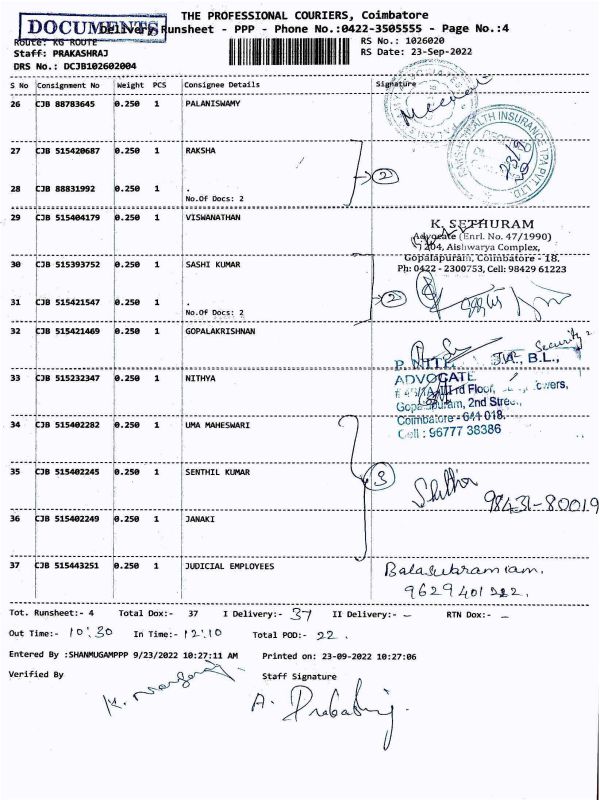 THE PROFESSIONAL COURIERS, Coimbatore
DOCUMENTS
Delivery Runsheet - PPP - Phone No.:0422-3505555 - Page No.:4
Route: KG ROUTE
RS No.: 1026020
Staff: PRAKASHRAJ
RS Date: 23-Sep-2022
DRS No.: DCJB102602004
S No Consignment No Weight PCS Consignee Details Signature
26 CJB 88783645 0.250 1 PALANISWAMY
HEALTH INSURANCE TPA PVT LTD
27 CJB 515420687 0.250 1 RAKSHA
2
28 CJB 88831992 0.250 1 .
No.Of Docs: 2
29 CJB 515404179 0.250 1 VISWANATHAN
K. SETHURAM
Advocate (Enrl. No. 47/1990)
204, Aishwarya Complex,
Gopalapuram, Coimbatore - 18.
Ph: 0422 - 2300753, Cell: 98429 61223
30 CJB 515393752 0.250 1 SASHI KUMAR
2
31 CJB 515421547 0.250 1 .
No.Of Docs: 2
32 CJB 515421469 0.250 1 GOPALAKRISHNAN
Security
B.L.,
33 CJB 515232347 0.250 1 NITHYA
ADVOCATE
rd Floor,
Gopalapuram, 2nd Street,
Coimbatore - 641 018.
Cell : 96777 38386
34 CJB 515402282 0.250 1 UMA MAHESWARI
35 CJB 515402245 0.250 1 SENTHIL KUMAR
3
98431-80019
36 CJB 515402249 0.250 1 JANAKI
37 CJB 515443251 0.250 1 JUDICIAL EMPLOYEES
Balasubramaniam.
9629401222.
Tot. Runsheet:- 4 Total Dox:- 37 I Delivery:- 37 II Delivery:- - RTN Dox:- -
Out Time:- 10:30 In Time:- 12:10 Total POD:- 22.
Entered By :SHANMUGAMPPP 9/23/2022 10:27:11 AM Printed on: 23-09-2022 10:27:06
Verified By Staff Signature